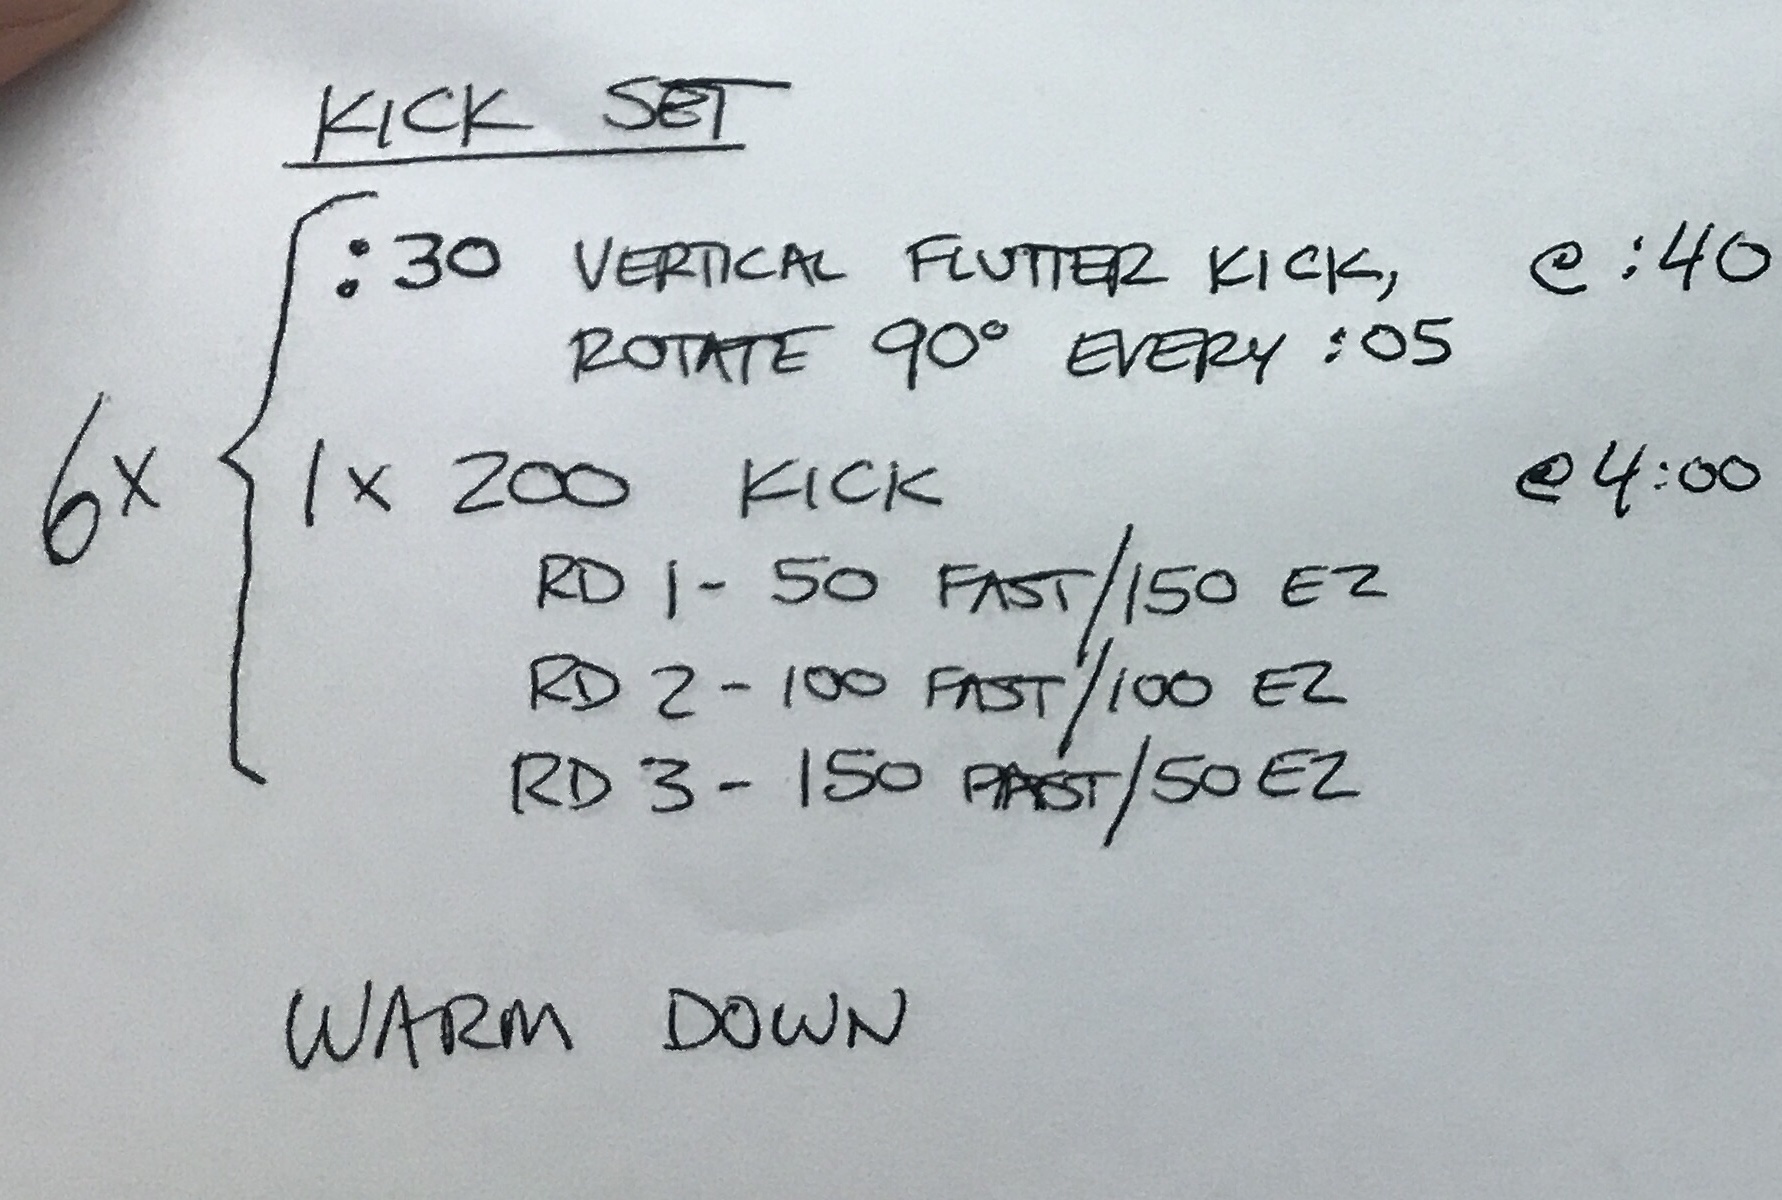 KICK SET
:30 VERTICAL FLUTTER KICK, @ :40
ROTATE 90° EVERY :05
6x
1 x 200 KICK @ 4:00
RD 1 - 50 FAST/150 EZ
RD 2 - 100 FAST/100 EZ
RD 3 - 150 FAST/50 EZ
WARM DOWN